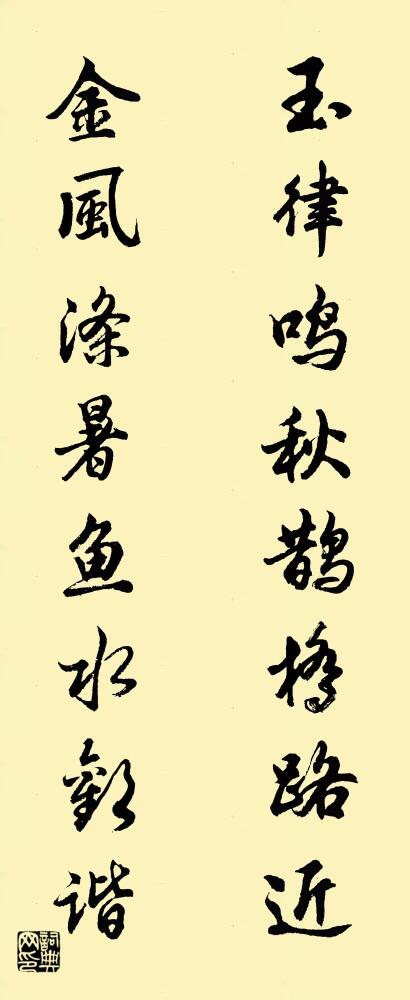 玉律鸣秋鹊桥路近
金風涤暑鱼水歡谐
詞典網印